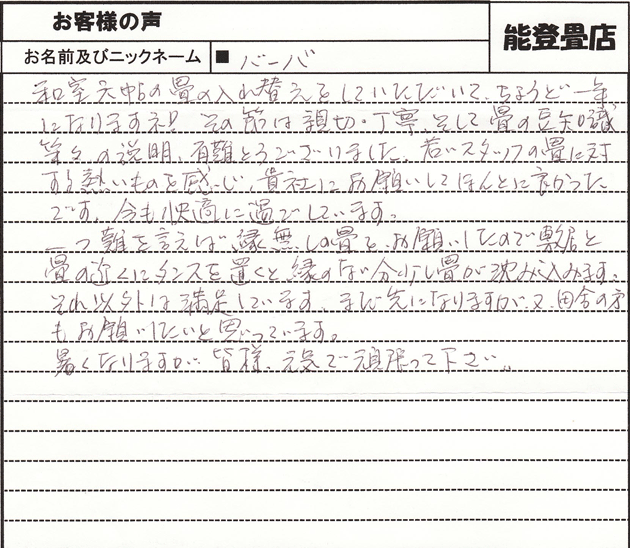 お客様の声
能登畳店
お名前及びニックネーム ■ バーバ
和室六帖の畳の入れ替えをしていただいて、ちょうど一年
になりますネ!! その節は親切・丁寧、そして畳の豆知識
等々の説明、有難とうございました。若いスタッフの畳に対
する熱いものを感じ、貴社にお願いしてほんとに良かった
です。今も快適に過ごしています。
一つ難を言えば、縁無しの畳を、お願いしたので敷居と
畳の近くにタンスを置くと縁のない分少し畳が沈み込みます。
それ以外は満足しています。まだ先になりますが、又、田舎の方
もお願いしたいと思っています。
暑くなりますが、皆様、元気で頑張って下さい。